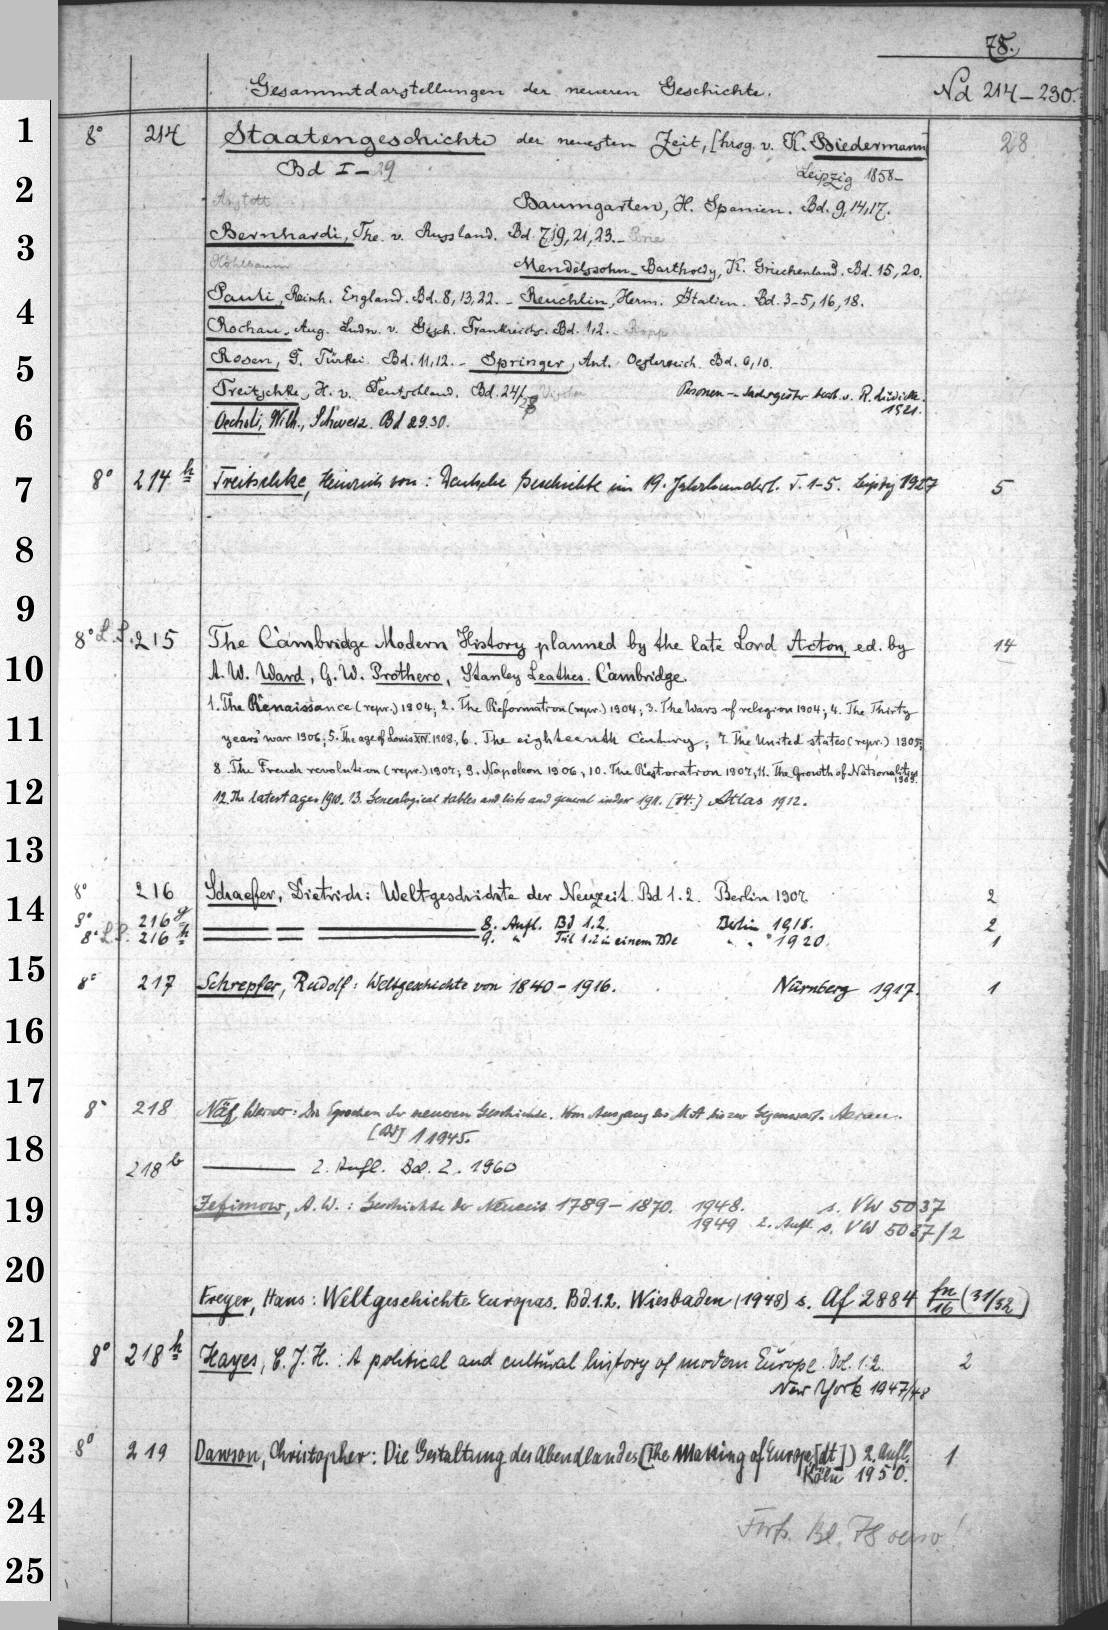 78.
Gesammtdarstellungen der neueren Geschichte. Nd 214-230.
1
8° 214 Staatengeschichte der neuesten Zeit, [hrsg. v. K. Biedermann] 28
Bd I-29 Leipzig 1858-
2
Baumgarten, H. Spanien. Bd. 9, 14, 17.
3
Bernhardi, The. v. Russland. Bd. 7, 19, 21, 23.-
Mendelssohn-Bartholdy, K. Griechenland. Bd. 15, 20.
4
Pauli, Reinh. England. Bd. 8, 13, 22. - Reuchlin, Herm. Italien. Bd. 3-5, 16, 18.
Rochau, Aug. Ludw. v. Gesch. Frankreichs. Bd. 1, 2.-
5
Rosen, G. Türkei Bd. 11, 12. - Springer, Ant. Oesterreich Bd. 6, 10.
Treitschke, H. v. Deutschland. Bd. 24/28 Personen- u. Sachregister bearb. v. R. Lüdicke.
1921.
6
Oechsli, Wilh., Schweiz. Bd 29.30.
7
8° 214 h Treitschke, Heinrich von: Deutsche Geschichte im 19. Jahrhundert. T. 1-5. Leipzig 1927 5
8
9
8° L.S. 215 The Cambridge Modern History planned by the late Lord Acton, ed. by 14
10
A. W. Ward, G. W. Prothero, Stanley Leathes. Cambridge.
1. The Renaissance (repr.) 1904; 2. The Reformation (repr.) 1904; 3. The Wars of religion 1904; 4. The Thirty
11
years' war 1906; 5. The age of Louis XIV. 1908; 6. The eighteenth Century; 7. The United states (repr.) 1905;
8. The French revolution (repr.) 1907; 9. Napoleon 1906; 10. The Restoration 1907; 11. The Growth of Nationalities
1909.
12
12. The latest age 1910. 13. Genealogical tables and lists and general index 1911. [14:] Atlas 1912.
13
8° 216 Schaefer, Dietrich: Weltgeschichte der Neuzeit. Bd 1.2. Berlin 1907. 2
14
8° 216 g 8. Aufl. Bd 1.2. Berlin 1918. 2
8° L.S. 216 h 9. " Teil 1.2 in einem Bde " " 1920. 1
15
8° 217 Schrepfer, Rudolf: Weltgeschichte von 1840-1916. Nürnberg 1917. 1
16
17
8° 218 Näf, Werner: Die Epochen der neueren Geschichte. Vom Ausgang des MA bis zur Gegenwart. Aarau.
[Bd] 1 1945.
18
218 b 2. Aufl. Bd. 2. 1960
19
Jefimow, A. W.: Geschichte der Neuzeit 1789-1870. 1948. s. VW 5037
1949 2. Aufl. s. VW 5037/2
20
Freyer, Hans: Weltgeschichte Europas. Bd. 1.2. Wiesbaden (1948) s. Af 2884 fn/16 (31/32)
21
8° 218 h Hayes, C. J. H.: A political and cultural history of modern Europe. Vol. 1.2. 2
22
New York 1947/48
23
8° 219 Dawson, Christopher: Die Gestaltung des Abendlandes (The Making of Europe [dt.]) 2. Aufl. 1
Köln 1950.
24
Forts. Bl. 78 verso!
25